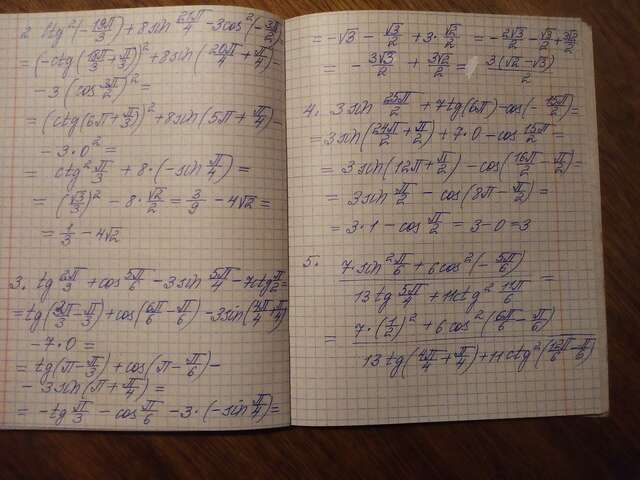 2. ctg²(-19π/3) + 8sin 21π/4 - 3cos²(-3π/2) =
= (-ctg(18π/3 + π/3))² + 8sin(20π/4 + π/4) -
- 3(cos 3π/2)² =
= (ctg(6π + π/3))² + 8sin(5π + π/4) -
- 3·0² =
= ctg² π/3 + 8·(-sin π/4) =
= (√3/3)² - 8·√2/2 = 3/9 - 4√2 =
= 1/3 - 4√2
3. tg 2π/3 + cos 5π/6 - 3sin 5π/4 - 7ctg π/2 =
= tg(3π/3 - π/3) + cos(6π/6 - π/6) - 3sin(4π/4 + π/4) -
- 7·0 =
= tg(π - π/3) + cos(π - π/6) -
- 3sin(π + π/4) =
= -tg π/3 - cos π/6 - 3·(-sin π/4) =
= -√3 - √3/2 + 3·√2/2 = -2√3/2 - √3/2 + 3√2/2
= -3√3/2 + 3√2/2 = 3(√2-√3)/2
4. 3sin 25π/2 + 7tg(6π) - cos(-15π/2) =
= 3sin(24π/2 + π/2) + 7·0 - cos 15π/2 =
= 3sin(12π + π/2) - cos(16π/2 - π/2) =
= 3sin π/2 - cos(8π - π/2) =
= 3·1 - cos π/2 = 3 - 0 = 3
5. (7·sin² π/6 + 6cos²(-5π/6)) / (13tg 5π/4 + 11ctg² 11π/6) =
= (7·(1/2)² + 6cos²(6π/6 - π/6)) / (13tg(4π/4 + π/4) + 11ctg²(12π/6 - π/6))